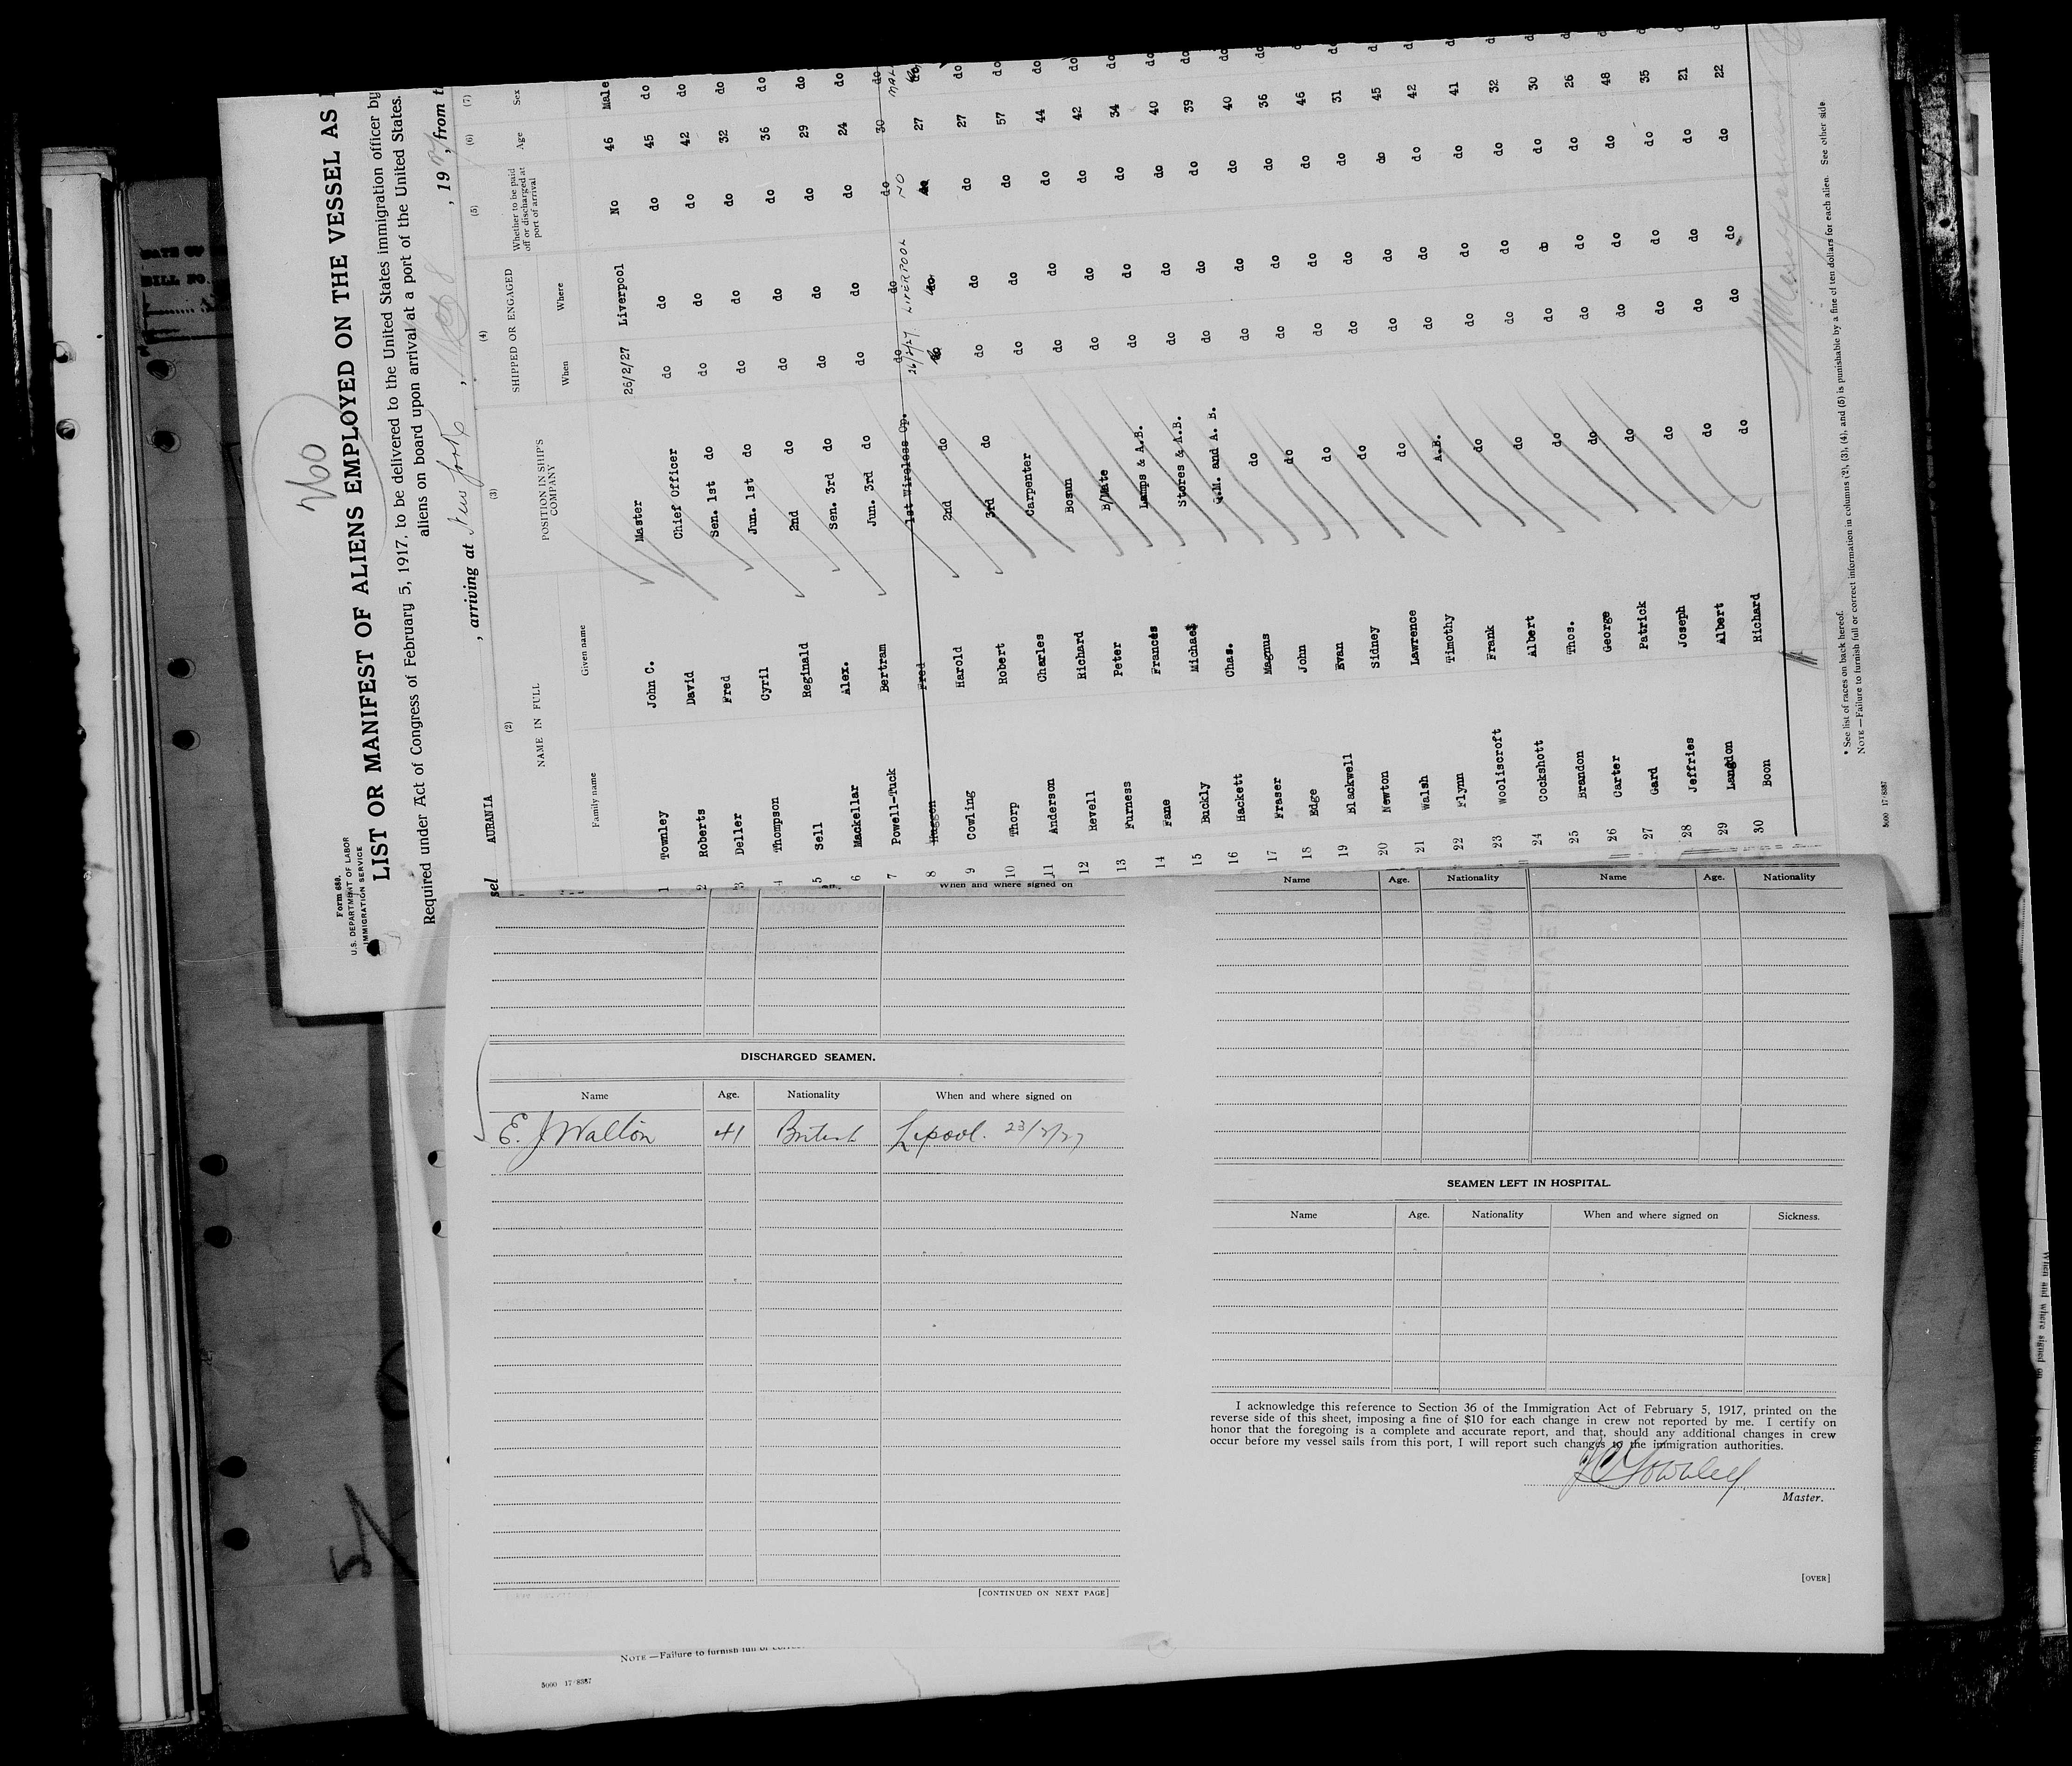 260
Form 680.
U.S. DEPARTMENT OF LABOR
IMMIGRATION SERVICE
LIST OR MANIFEST OF ALIENS EMPLOYED ON THE VESSEL AS
Required under Act of Congress of February 5, 1917, to be delivered to the United States immigration officer by
aliens on board upon arrival at a port of the United States.
sel AURANIA , arriving at New York , , 1927, from t
(2) (3) (4) (5) (6) (7)
NAME IN FULL POSITION IN SHIP'S COMPANY SHIPPED OR ENGAGED Whether to be paid off or discharged at port of arrival Age Sex
Family name Given name When Where
1 Townley John C. Master 26/2/27 Liverpool No 46 Male
2 Roberts David Chief Officer do do do 45 do
3 Deller Fred Sen. 1st do do do do 42 do
4 Thompson Cyril Jun. 1st do do do do 32 do
5 Sell Reginald 2nd do do do do 36 do
6 Mackellar Alex. Sen. 3rd do do do do 29 do
7 Powell-Tuck Bertram Jun. 3rd do do do do 24 do
8 Fred 1st Wireless Op. do do do 30 do
26/2/27 LIVERPOOL NO MALE
9 Cowling Harold 2nd do do do do 27 do
10 Thorp Robert 3rd do do do do 27 do
11 Anderson Charles Carpenter do do do 57 do
12 Revell Richard Bosun do do do 44 do
13 Furness Peter B/Mate do do do 42 do
14 Fane Francis Lamps & A.B. do do do 34 do
15 Buckly Michael Stores & A.B. do do do 40 do
16 Hackett Chas. Q.M. and A. B. do do do 39 do
17 Fraser Magnus do do do do 40 do
18 Edge John do do do do 36 do
19 Blackwell Evan do do do do 46 d
20 Newton Sidney do do do do 31 do
21 Walsh Lawrence do do do do 45 d
22 Flynn Timothy A.B. do do do 42 d
23 Wooliscroft Frank do do do do 41 d
24 Cockshott Albert do do do do 32 d
25 Brandon Thos. do do do do 30 d
26 Carter George do do do do 26 d
27 Gard Patrick do do do do 48 d
28 Jeffries Joseph do do do do 35 d
29 Langdon Albert do do do do 21 d
30 Boon Richard do do do do 22 d
* See list of races on back hereof.
NOTE—Failure to furnish full or correct information in columns (2), (3), (4), and (5) is punishable by a fine of ten dollars for each alien. See other side
5000 17/8387
When and where signed on
Name Age. Nationality Name Age. Nationality
DISCHARGED SEAMEN.
Name Age. Nationality When and where signed on
E. J Walton 41 British Lpool. 23/2/27
[CONTINUED ON NEXT PAGE]
SEAMEN LEFT IN HOSPITAL.
Name Age. Nationality When and where signed on Sickness.
I acknowledge this reference to Section 36 of the Immigration Act of February 5, 1917, printed on the
reverse side of this sheet, imposing a fine of $10 for each change in crew not reported by me. I certify on
honor that the foregoing is a complete and accurate report, and that, should any additional changes in crew
occur before my vessel sails from this port, I will report such changes to the immigration authorities.
JC Townley
Master.
[OVER]
NOTE—Failure to furnish full or
5000 17/8387
When and where signed on